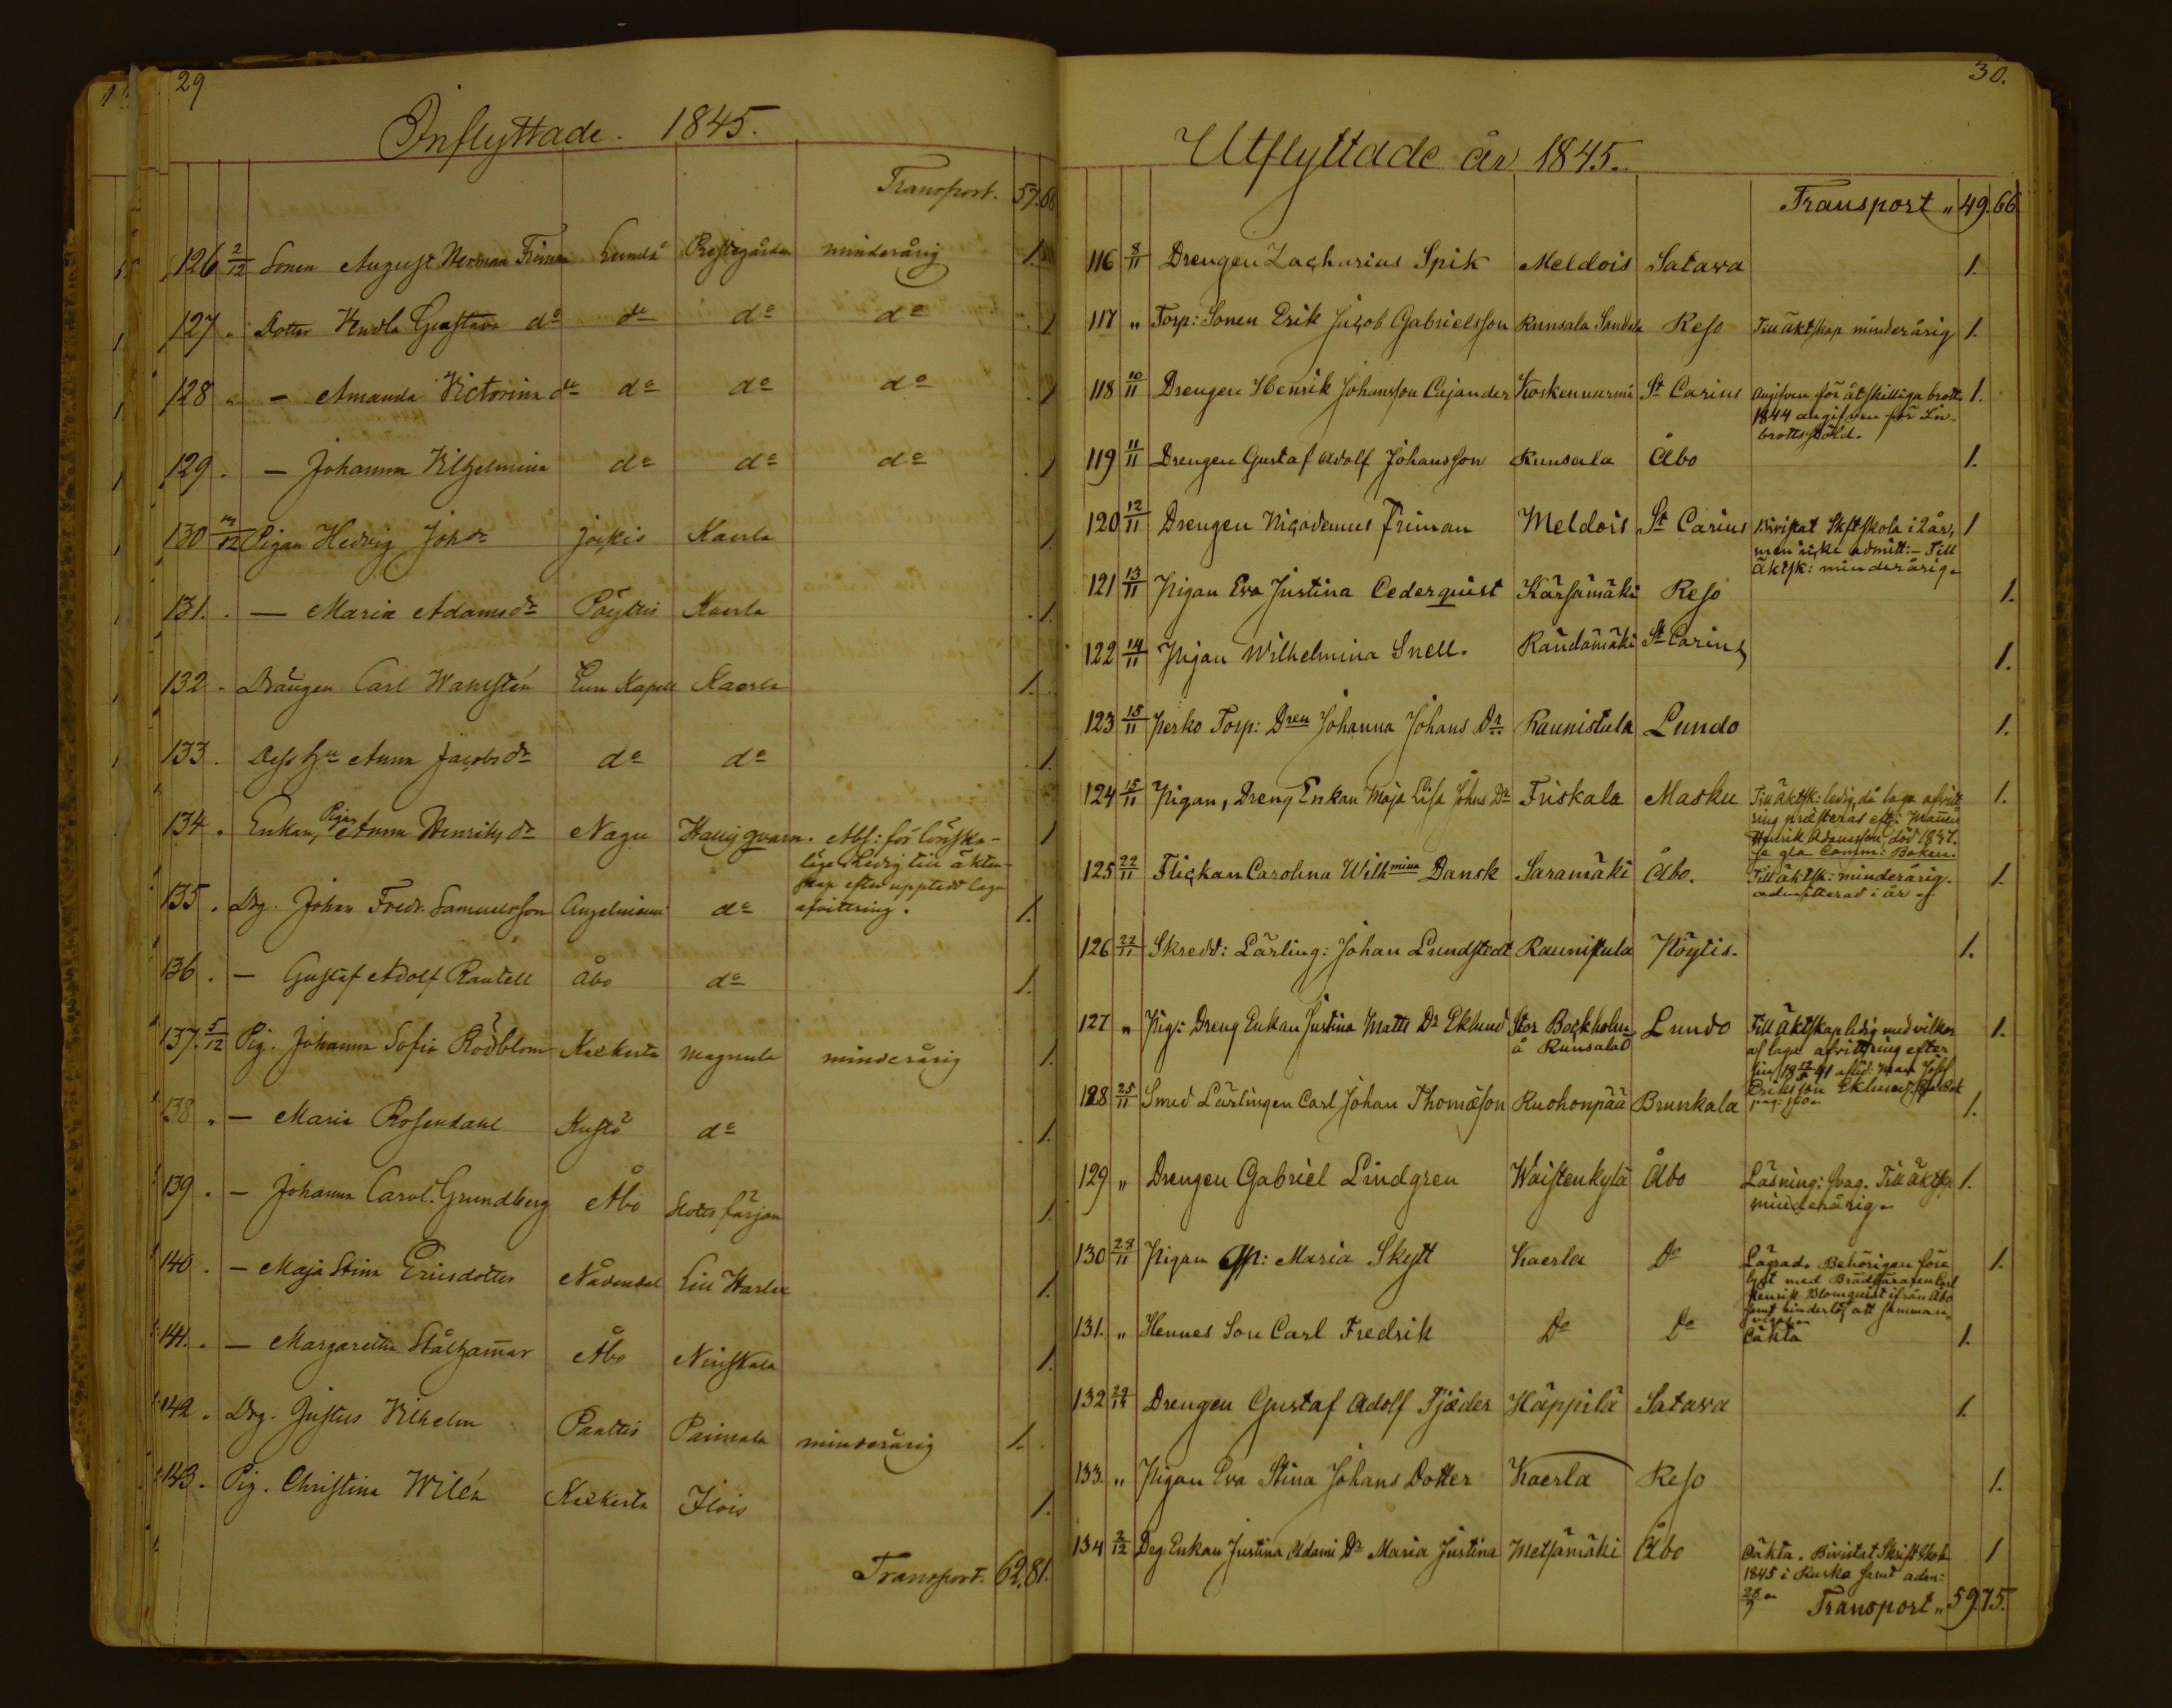 29
Inflyttade. 1845.
Transport. 57. 68
126 2/12 Sonen August Herman Friman Lundå Prestgården minderårig 1.
127 " Dotter Hedla Gustava do do do do 1
128 " — Amanda Victorina do do do do 1
129 . — Johanna Vilhelmina do do do 1
130 /12 Pigan Hedvig Johdr Jockis Kaerla 1
131. . — Maria Adamsdr Pöyttis Kaerla 1.
132 - Drängen Carl Wahlstén Eura Kapell Kaerla 1.
133 . Dess hu Anna Jacobsdr do do 1.
134 . Enkan, Pigan Anna Henriksdr Nagu Hallis qvarn. Abs: för lönska-
läge Ledig till äkten-
skap efter upptedd laga
afvittring. 1
135 . Drg. Johan Fredr. Samuelsson Angelniemi do 1.
136 . — Gustaf Adolf Rautell Åbo do 1.
137. 5/12 Pig. Johanna Sofia Rodblom Kakkerta Magnula minderårig 1.
138 " — Maria Rosendahl Kustö do 1.
139 . — Johanna Carol. Grundberg Åbo Slotts färjan 1.
140 . — Maja Stina Ericsdotter Nådendal Lill Harla 1.
141. . — Margaretha Stålhamar Åbo Niuskala 1.
142 . Drg. Justus Vilhelm Paattis Paimala minderårig 1.
143 . Pig. Christina Wilén Kakkerta Ilois 1.
Transport. 62. 81.
30.
Utflyttade år 1845.
Transport " 49. 66
116 8/11 Drengen Zacharias Spik Meldois Satava 1.
117 " Torp: Sonen Erik Jacob Gabrielsson Runsala Sandala Reso Till äktskap minderårig 1.
118 10/11 Drengen Henrik Johansson Cajander Koskennurmi St Carins Angifven för åtskilliga brott, 1.
1844 angifven för In-
brottsstöld.
119 11/11 Drengen Gustaf Adolf Johansson Runsala Åbo 1.
120 12/11 Drengen Nicodemus Friman Meldois St Carins Bivistat Skftskola i 2 år, 1
men icke admitt: – Till
äktsk: minderårig.
121 13/11 Pigan Eva Justina Cederquist Kärsämäki Reso 1.
122 14/11 Pigan Wilhelmina Snell. Rändämäki St Carins 1.
123 15/11 Perko Torp: Dren Johanna Johans Dr Raunistula Lundo 1.
124 15/11 Pigan, Dreng Enkan Maja Lisa Johns Dr Friskala Masku Till äktsk: ledig, då laga afvitt 1.
ring præsteras eft: Mannen
Henrik Adamsson, död 1837.
se gla Comm: Boken.
125 22/11 Flickan Carolina Wilhmina Dansk Saramäki Åbo. Till äktsk: minderårig. 1.
admitterad i år.
126 22/11 Skredd: Lärling: Johan Lundstedt Raunistula Pöytis. 1.
127 " Pig: Dreng Enkan Justina Matts Dr Eklund Stor Bockholm Lundo Till äktskap ledig med vilkor 1.
å Runsala af laga afvittring efter
Eriksson Eklund
128 25/11 Smed Lärlingen Carl Johan Thomæson Ruohonpää Brunkala 1.
129 " Drengen Gabriel Lindgren Waistenkylä Åbo Läsning: svag. Till äktsk 1.
minderårig.
130 28/11 Pigan Maria Skytt Kaerla Do Lägrad. Behörigen före 1.
lyst med
Henrik Blomquist ifrån Åbo
samt hinderlös att samman-
131. " Hennes Son Carl Fredrik Do Do Oäkta 1.
132 Drengen Gustaf Adolf Tjæder Häppilä Satava 1.
133. " Pigan Eva Stina Johans Dotter Kaerla Reso 1.
134 2/12 Deg Enkan Justina Adami Dr Maria Justina Metsämäki Åbo Oäkta. Bivistat Skriftskol 1
1845 i Rusko samt adm:
28/9 Transport " 59. 75.